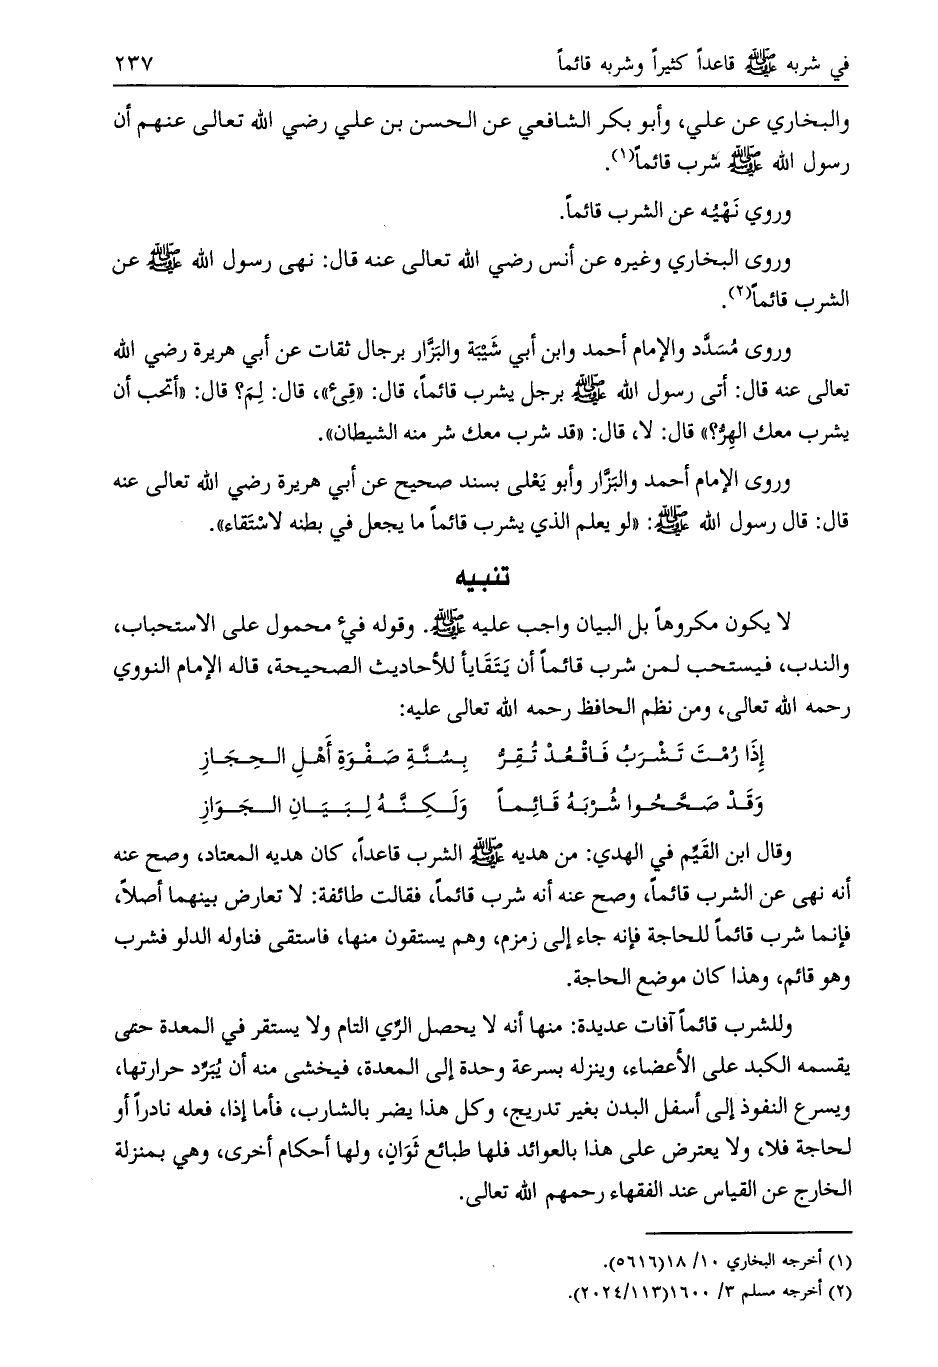 في شربه ﷺ قاعداً كثيراً وشربه قائماً ٢٣٧
والبخاري عن علي، وأبو بكر الشافعي عن الحسن بن علي رضي الله تعالى عنهم أن
رسول الله ﷺ شرب قائماً(١).
وروي نَهْيُه عن الشرب قائماً.
وروى البخاري وغيره عن أنس رضي الله تعالى عنه قال: نهى رسول الله ﷺ عن
الشرب قائماً(٢).
وروى مُسَدَّد والإمام أحمد وابن أبي شَيْبَة والبَزَّار برجال ثقات عن أبي هريرة رضي الله
تعالى عنه قال: أتى رسول الله ﷺ برجل يشرب قائماً، قال: «قِئ»، قال: لِمَ؟ قال: «أتحب أن
يشرب معك الهِرُّ؟» قال: لا، قال: «قد شرب معك شر منه الشيطان».
وروى الإمام أحمد والبَزَّار وأبو يَعْلى بسند صحيح عن أبي هريرة رضي الله تعالى عنه
قال: قال رسول الله ﷺ: «لو يعلم الذي يشرب قائماً ما يجعل في بطنه لاسْتَقاء».
تنبيه
لا يكون مكروهاً بل البيان واجب عليه ﷺ. وقوله فيء محمول على الاستحباب،
والندب، فيستحب لمن شرب قائماً أن يَتَقَايأ للأحاديث الصحيحة، قاله الإمام النووي
رحمه الله تعالى، ومن نظم الحافظ رحمه الله تعالى عليه:
إِذَا رُمْتَ تَشْرَبُ فَاقْعُدْ تُقِرُّ بِسُنَّةِ صَفْوَةِ أَهْلِ الحِجَازِ
وَقَدْ صَحَّحُوا شُرْبَهُ قَائِماً وَلَكِنَّهُ لِبَيَانِ الجَوَازِ
وقال ابن القَيِّم في الهدي: من هديه ﷺ الشرب قاعداً، كان هديه المعتاد، وصح عنه
أنه نهى عن الشرب قائماً، وصح عنه أنه شرب قائماً، فقالت طائفة: لا تعارض بينهما أصلاً،
فإنما شرب قائماً للحاجة فإنه جاء إلى زمزم، وهم يستقون منها، فاستقى فناوله الدلو فشرب
وهو قائم، وهذا كان موضع الحاجة.
وللشرب قائماً آفات عديدة: منها أنه لا يحصل الرِّي التام ولا يستقر في المعدة حتى
يقسمه الكبد على الأعضاء، وينزله بسرعة وحدة إلى المعدة، فيخشى منه أن يُبَرِّد حرارتها،
ويسرع النفوذ إلى أسفل البدن بغير تدريج، وكل هذا يضر بالشارب، فأما إذا، فعله نادراً أو
لحاجة فلا، ولا يعترض على هذا بالعوائد فلها طبائع ثَوَانٍ، ولها أحكام أخرى، وهي بمنزلة
الخارج عن القياس عند الفقهاء رحمهم الله تعالى.
(١) أخرجه البخاري ١٠/ ١٨(٥٦١٦).
(٢) أخرجه مسلم ٣/ ١٦٠٠(٢٠٢٤/١١٣).